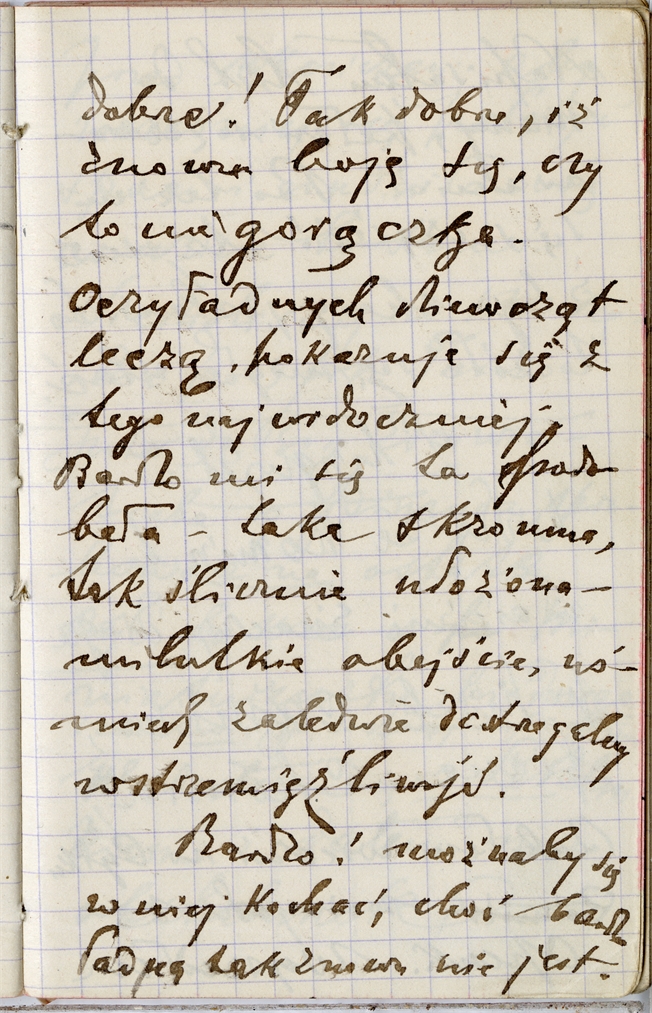 dobrze! Tak dobrze, iż
znowu boję się, czy
to nie gorączka.
Oczy ładnych dziewcząt
leczą, pokazuje się z
tego najwidoczniej.
Bardzo mi się ta podo-
bała – taka skromna,
tak ślicznie ułożona –
milutkie obejście, uś-
miech zaledwie dostrzegalny
wstrzemięźliwość.
Bardzo! można by się
w niej kochać, choć bardzo
ładną tak znowu nie jest.